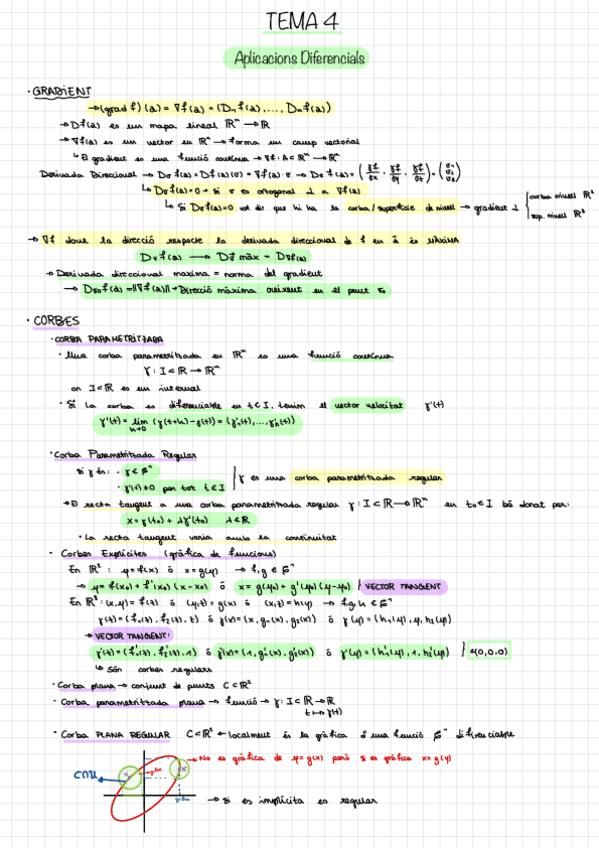 TEMA 4
Aplicacions Diferencials
· GRADIENT
→ (grad f)(a) = ∇f(a) = (D₁f(a), ..., Dₙf(a))
→ Df(a) es un mapa lineal ℝⁿ → ℝ
→ ∇f(a) es un vector en ℝⁿ → forma un camp vectorial
↳ El gradient es una funció contínua → ∇f: A⊂ℝⁿ → ℝⁿ
Derivada Direccional → Dσf(a) = Df(a)(σ) = ∇f(a)·σ
↳ Dσf(a)=0 → si σ es ortogonal ⊥ a ∇f(a)
↳ Si Dσf(a)=0 vol dir que hi ha la corba/superfície de nivell → gradient ⊥ { corba nivell ℝ²
sup. nivell ℝ³
→ ∇f dona la direcció respecte la derivada direccional de f en a és MÀXIMA
→ Derivada direccional maxima = norma del gradient
Direcció màxima creixent en el punt
· CORBES
· CORBA PARAMETRITZADA
· Una corba parametritzada en ℝⁿ es una funció contínua
γ: I⊂ℝ → ℝⁿ
on I⊂ℝ es un interval
· Si la corba es diferenciable en t∈I, tenim el vector velocitat γ'(t)
γ'(t) = lim h→0 (γ(t+h) - γ(t)) = (γ'₁(t), ..., γ'ₙ(t))
· Corba Parametritzada Regular
si γ és: · γ∈
· γ'(t)≠0 per tot t∈I } γ es una corba parametritzada regular
→ El recta tangent a una corba parametritzada regular γ: I⊂ℝ → ℝⁿ en t₀∈I bé donat per:
x = γ(t₀) + λγ'(t₀) λ∈ℝ
· La recta tangent varia amb la continuitat
· Corbes Explícites (gràfica de funcions)
En ℝ²: y=f(x) ó x=g(y) → f,g ∈
→ y = f(x₀) + f'(x₀)(x-x₀) ó x = g(y₀) + g'(y₀)(y-y₀) } VECTOR TANGENT
En ℝ³: (x,y)=f(z) ó (y,z)=g(x) ó (x,z)=h(y) → f,g,h ∈
γ(z)=(f₁(z), f₂(z), z) ó γ(x)=(x, g₁(x), g₂(x)) ó γ(y)=(h₁(y), y, h₂(y))
→ VECTOR TANGENT:
γ'(z)=(f'₁(z), f'₂(z), 1) ó γ'(x)=(1, g'₁(x), g'₂(x)) ó γ'(y)=(h'₁(y), 1, h'₂(y)) } ≠(0,0,0)
↳ Són corbes regulars
· Corba plana → conjunt de punts C⊂ℝ²
· Corba parametritzada plana → funció → γ: I⊂ℝ → ℝ
t ↦ γ(t)
· Corba PLANA REGULAR C⊂ℝ² ← localment és la gràfica d'una funció diferenciable
→ No es gràfica de y=g(x) però si es gràfica x=g(y)
→ si es implícita es regular